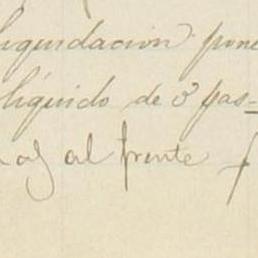 liquidacion pone
líquido de 3 pas-
al frente